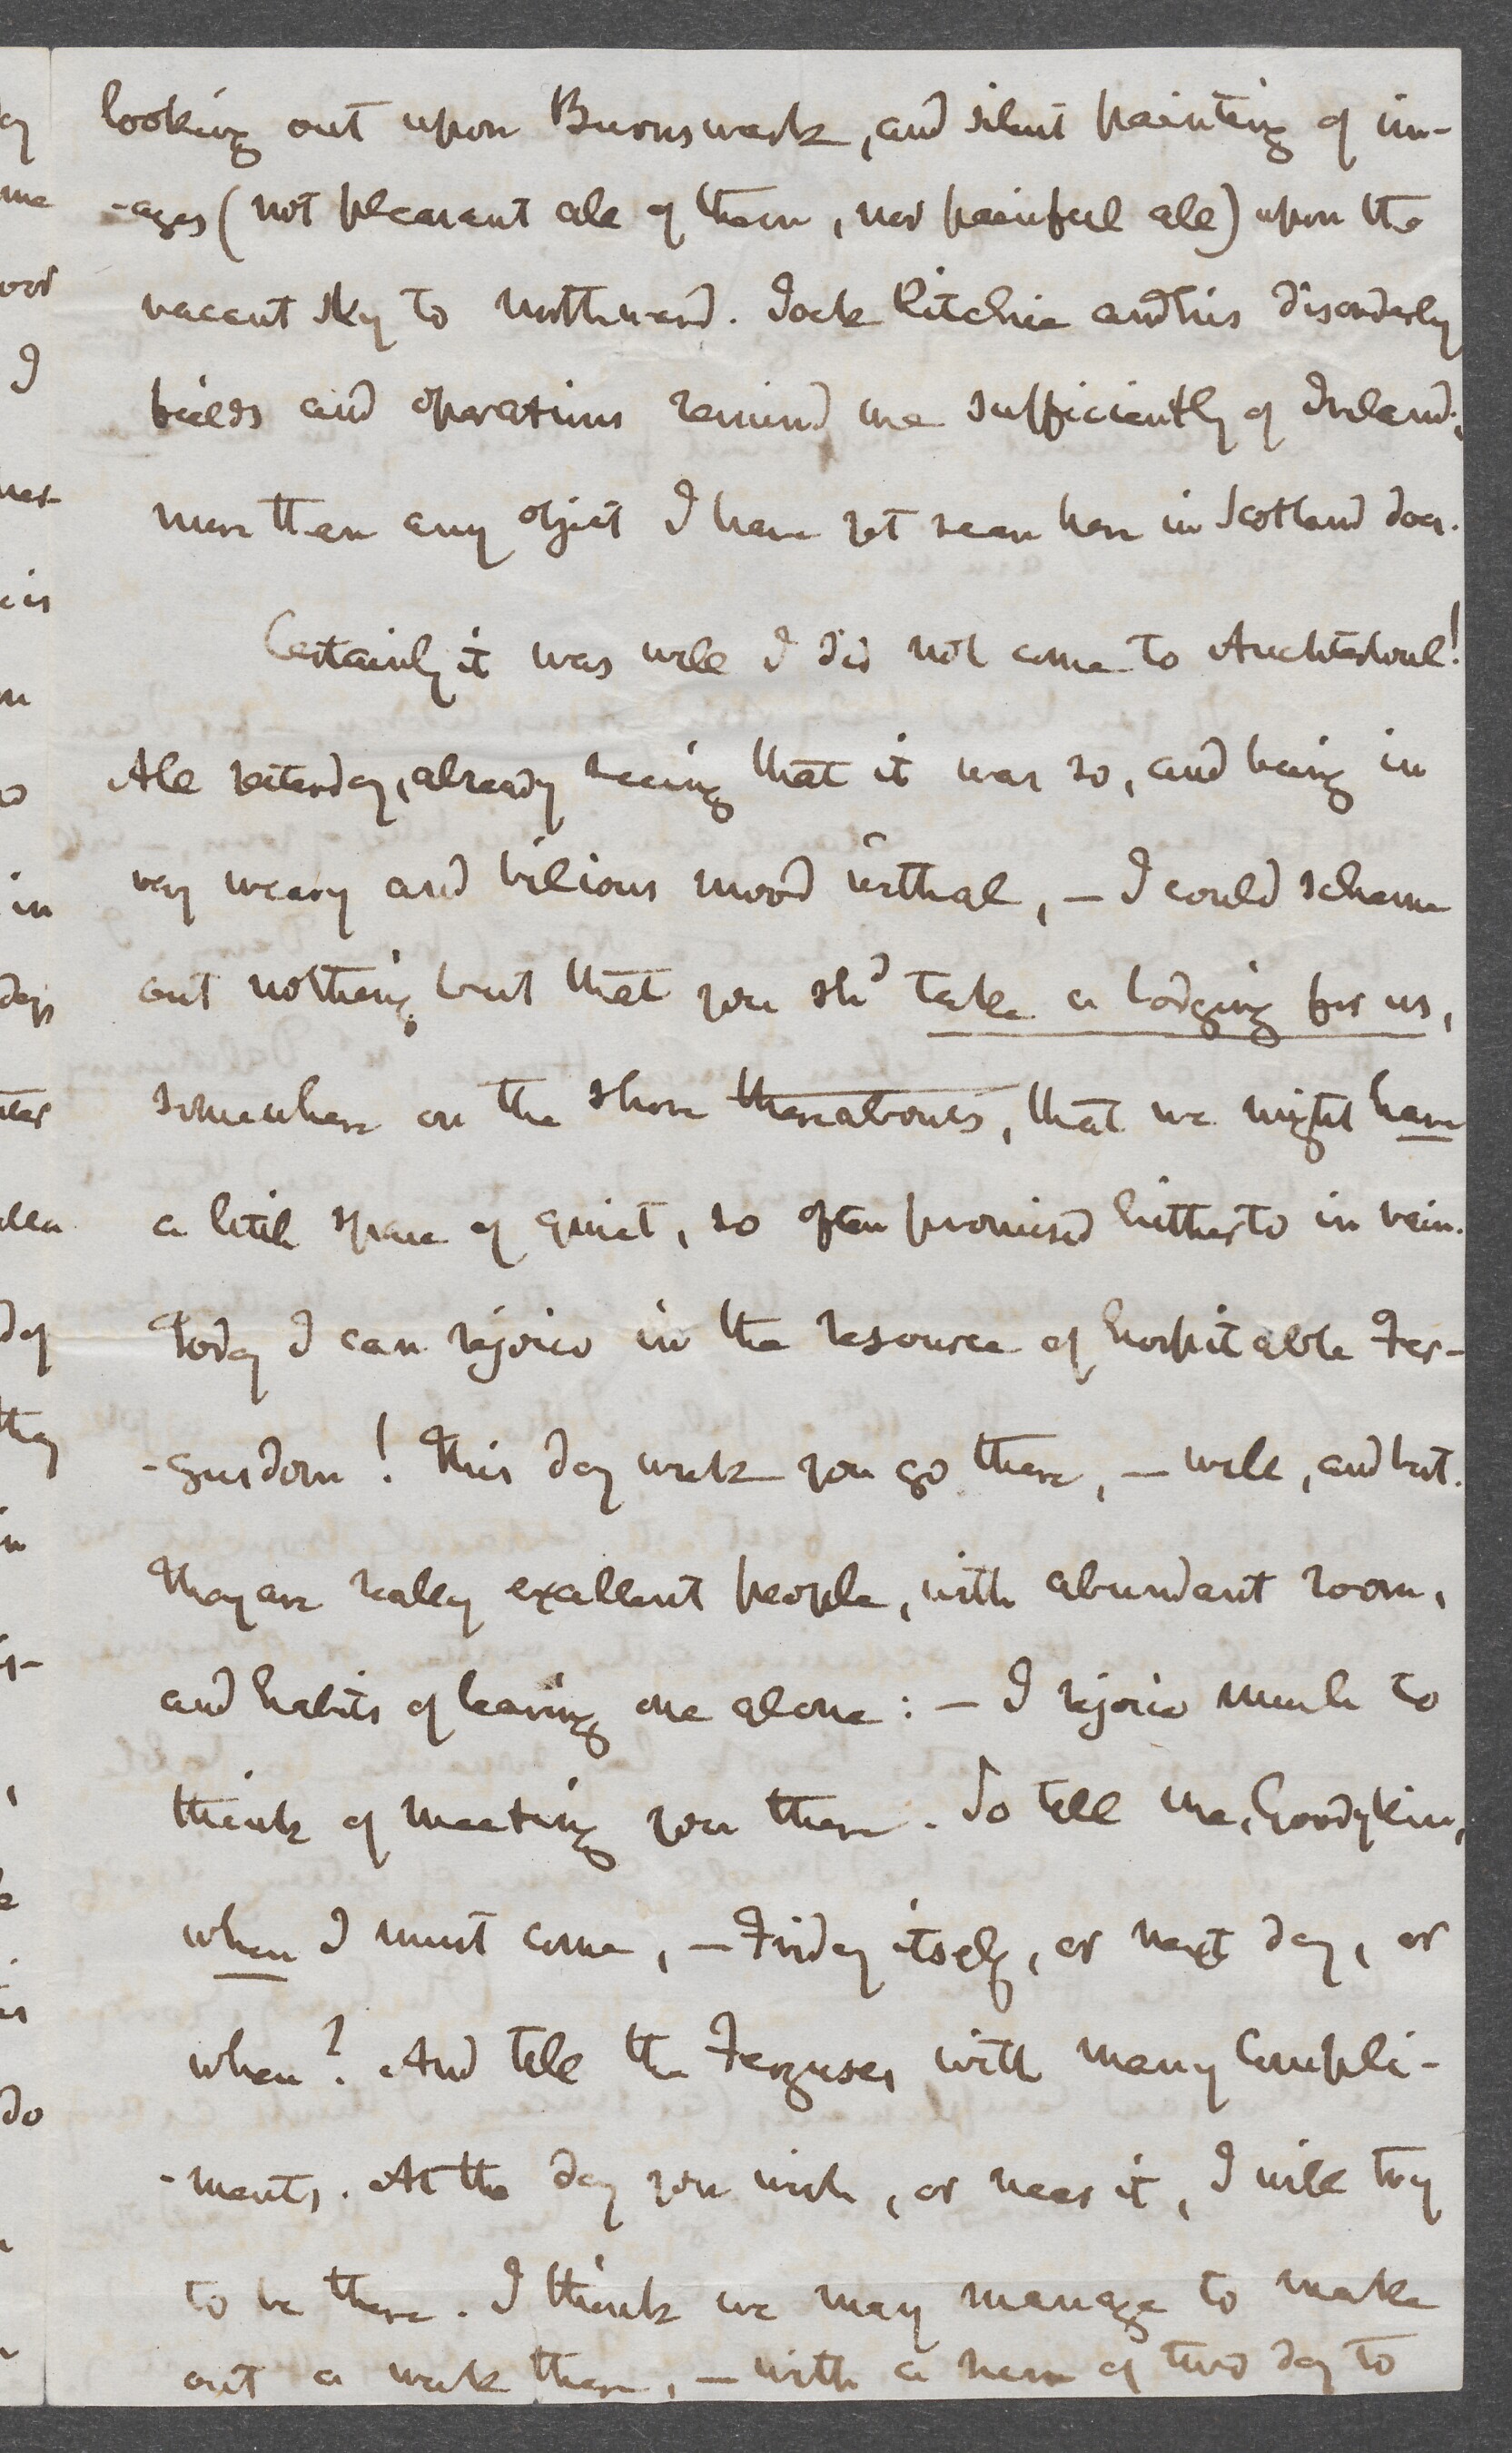 looking out upon Burnswark, and silent painting of im-
-ages (not pleasant all of them, nor painful all) upon the
vacant sky to northward. Jock Ritchie and his disorderly
fields and operations remind me sufficiently of Ireland;
more than any object I have yet seen here in Scotland does.
Certainly it was well I did not come to Auchtertoul!
All yesterday, already seeing that it was so, and being in
very weary and bilious mood withal, – I could scheme
out nothing but that you shd take a lodging for us,
somewhere on the shore thereabouts, that we might have
a little space of quiet, so often promised hitherto in vain.
Today I can rejoice in the resource of hospitable Fer-
-gusdom! This day week you go there, – well, and best.
They are really excellent people, with abundant room,
and habits of leaving one alone: – I rejoice much to
think of meeting you there. So tell me, Goodykin,
when I must come, – Friday itself, or next day, or
when? And tell the Ferguses with many compli-
-ments. At the day you wish, or near it, I will try
to be there. I think we may manage to make
out a week there, – with a new of two day to